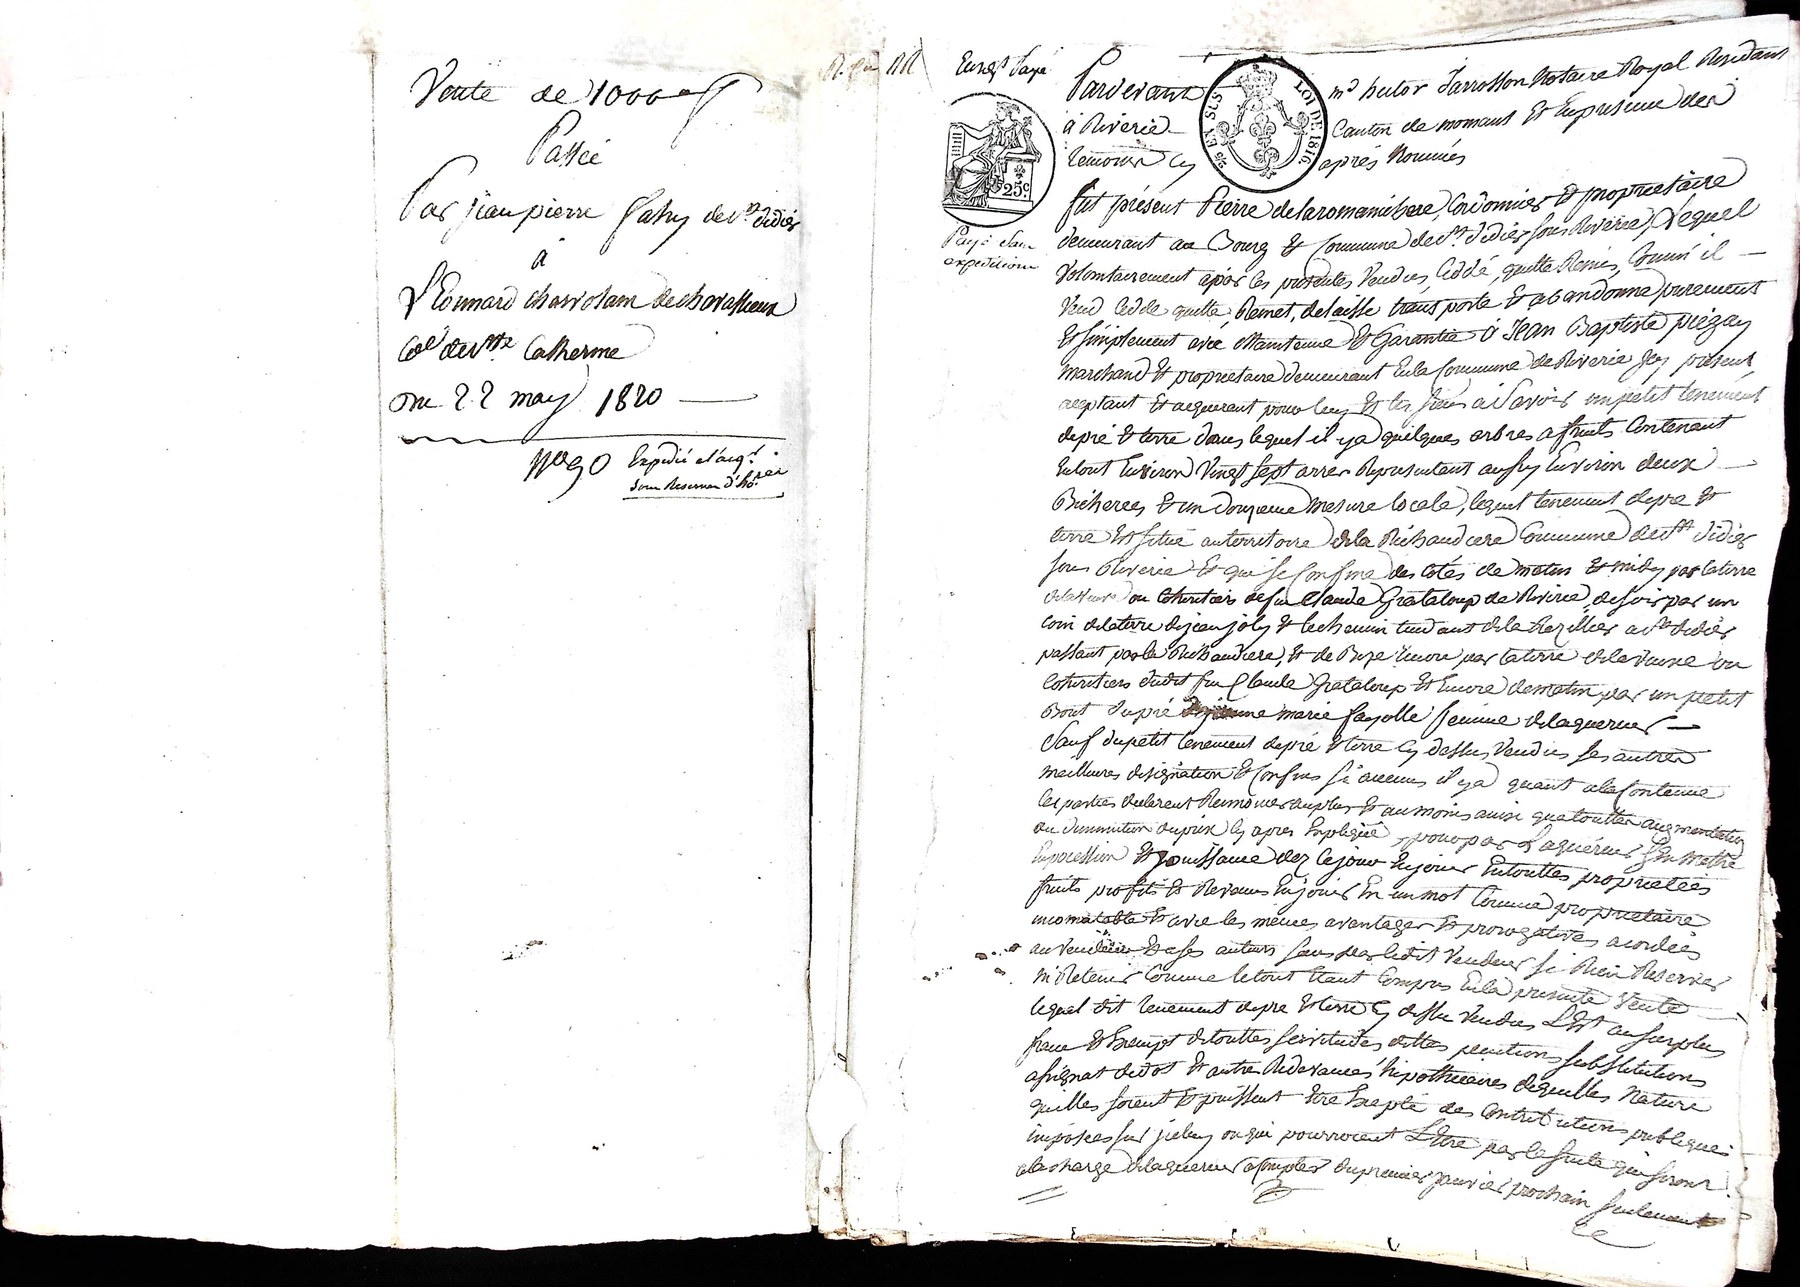 Vente de 1000 f
Passée
Par jean pierre fahy de St didier
à
Léonnard charrolam de chavassieux
Cne de Ste Catherine
Du 22 may 1820
No 90 Expedié a l'acqr
sous Reserves d'ho.res
Enregt Payé
Pardevant Me hector Jarrosson Notaire Royal Residant
à Riverie Canton de mornant Et En presence des
temoins Cy après Nommés
25 EN SUS
LOI DE 1816.
25c.
Payé d'une
expedition
fut présent Pierre delaromanihere, Cordonnier Et proprietaire
demeurant au Bourg Et Commune de St didier sous Riverie, Lequel
Volontairement a par les presentes Vendu, Cédé, quitté Remis, Comm'il
Vend Cedde quitte Remet, delaisse transporte Et abandonne purement
Et simplement avec Maintenue Et Garantie à Jean Baptiste piégay
Marchand Et proprietaire demeurant En la Commune de Riverie Icy présent
acceptant Et acquerant pour luy Et les siens à Savoir un petit tenement
de pré Et terre dans lequel il y a quelques arbres a fruits Contenant
En tout Environ Vingt sept arres Representant aussy Environ deux
Bicherées Et un Douzieme mesure locale, lequel tenement de pré Et
terre Est situé au territoire de la Richaudiere Commune de St didier
sous Riverie Et qui se Confine des cotés de matin Et midy par la terre
de la Veuve ou Cohéritiers de feu Claude Grataloup de Riverie, de soir par un
coin de la terre de jean joly Et le chemin tendant de la Rezillier a St didier
passant par la Richaudiere, Et de Bize Encore par la terre de la Veuve ou
Cohéritiers dudit feu Claude Grataloup Et Encore de matin par un petit
Bout du pré de jeanne marie fayolle femme de l'aquereur
Sauf du petit tenement de pré Et terre Cy dessus Vendus ses autres
meilleures désignation Et Confins si aucuns il y a quant a la Contenue
les parties declarent Renoncer au plus Et au moins ainsi qu'a toutte augmentation
ou diminution du prix Cy apres Expliqué, pour par L'aquéreur S'En Mettre
En possession Et Jouissance dez Ce jour En jouir En touttes proprietées
fruits profits Et Revenus En jouir En un mot Comme proprietaire
incomutable Et avec les mêmes avantages Et prerogatives acordées
au Vendeur Et a ses auteurs sans par ledit Vendeur s'i Rien Reserver
ni Retenir Comme le tout Etant Compris En la presente Vente
lequel dit tenement de pré Et terre Cy dessus Vendus Est au surplus
franc Et Exempt de touttes servitudes dettes pentions substitutions
assignat de dot Et autres Redevances hipothecaires de quelles Nature
qu'elles soient Et puissent Etre Excepté des Contributions publiques
imposées sur jceluy ou qui pourroient L'Etre par la suite qui seront
a la charge de l'aquereur a Compter du premier janvier prochain seulement